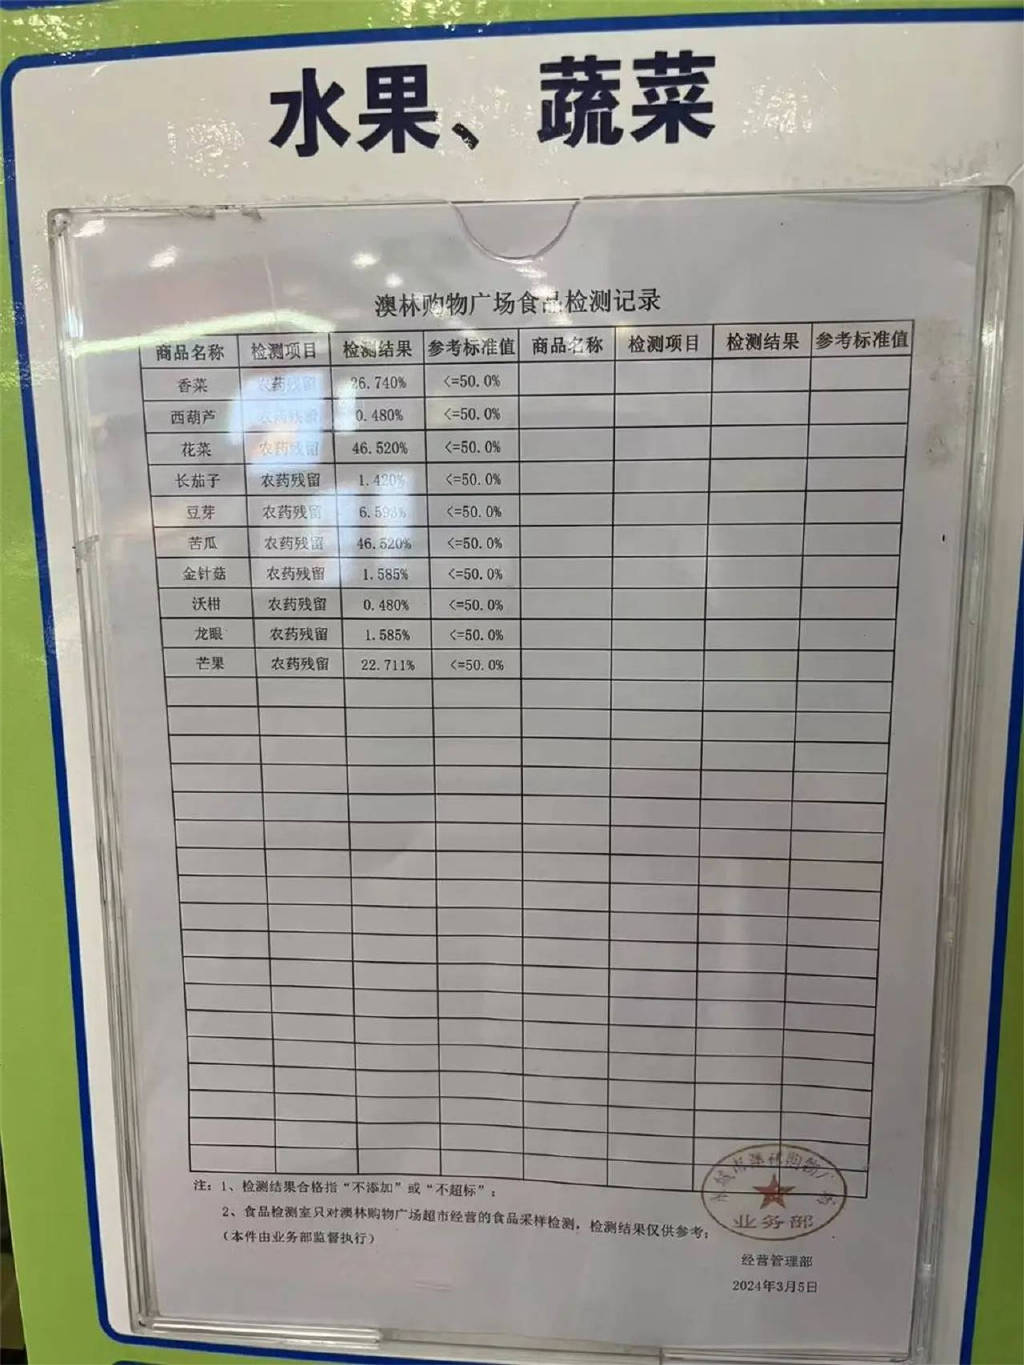 水果、蔬菜
澳林购物广场食品检测记录
商品名称 检测项目 检测结果 参考标准值 商品名称 检测项目 检测结果 参考标准值
香菜 农药残留 26.740% <=50.0%
西葫芦 农药残留 0.480% <=50.0%
花菜 农药残留 46.520% <=50.0%
长茄子 农药残留 1.420% <=50.0%
豆芽 农药残留 6.593% <=50.0%
苦瓜 农药残留 46.520% <=50.0%
金针菇 农药残留 1.585% <=50.0%
沃柑 农药残留 0.480% <=50.0%
龙眼 农药残留 1.585% <=50.0%
芒果 农药残留 22.711% <=50.0%
注：1、检测结果合格指“不添加”或“不超标”；
2、食品检测室只对澳林购物广场超市经营的食品采样检测，检测结果仅供参考；
（本件由业务部监督执行）
市澳林购物广场
业务部
经营管理部
2024年3月5日